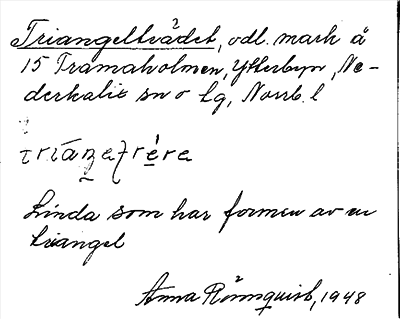 Triangelträdet, odl. mark å
15 Tramaholmen, Ytterbyn, Ne-
derkalix sn o lg, Norrb. l
Linda som har formen av en
triangel
Anna Rönnquist, 1948